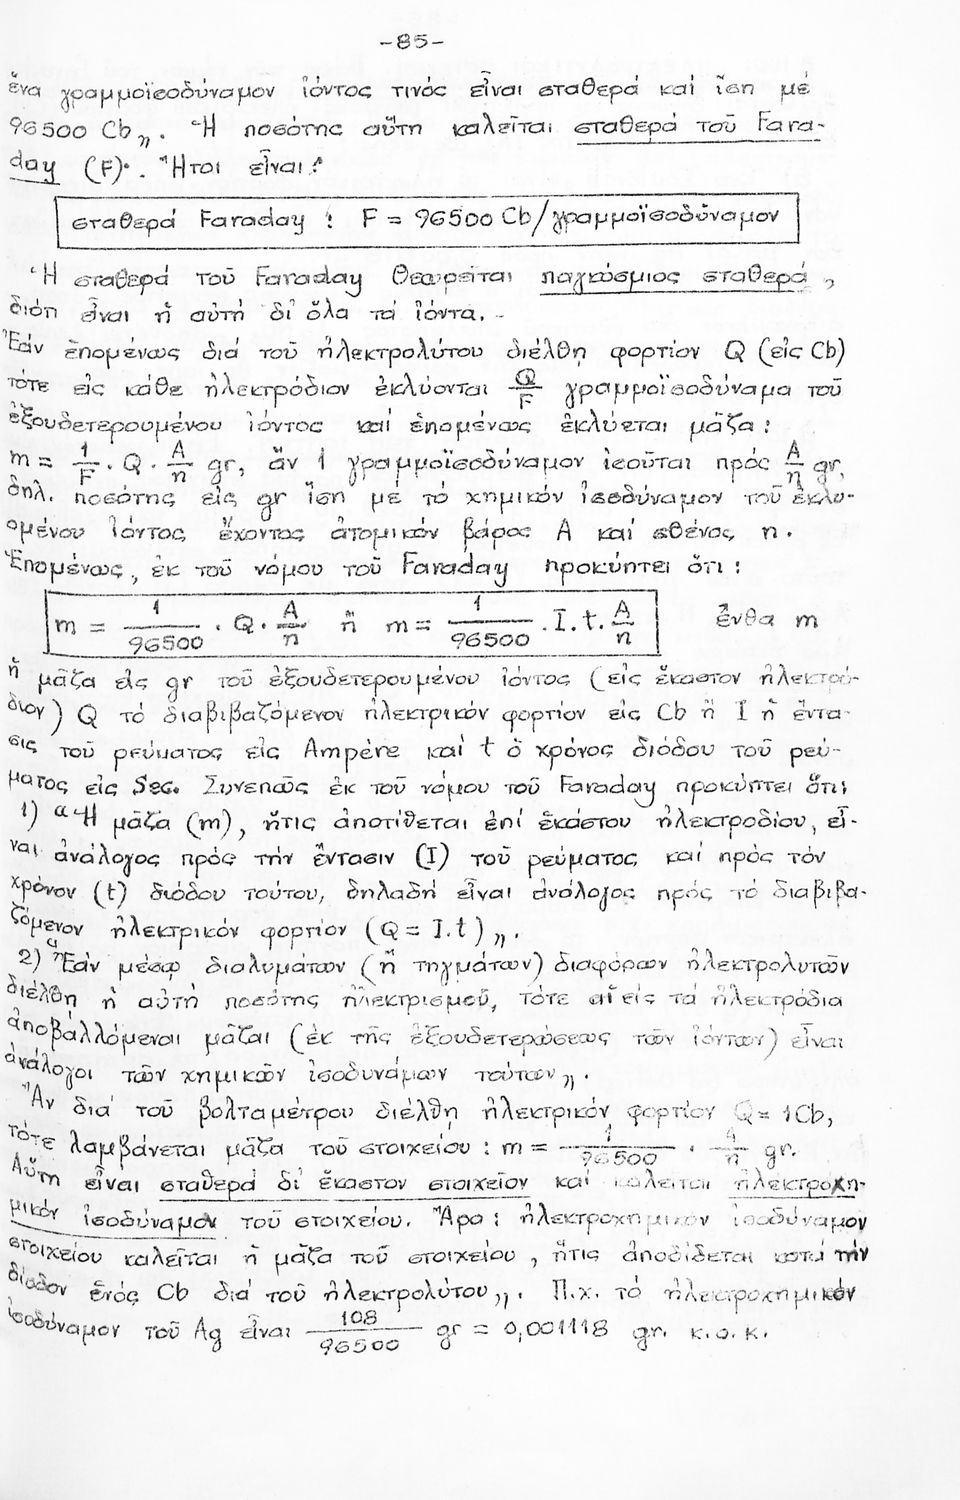 -85-
ἕνα γραμμοϊσοδύναμον ἰόντος τινός εἶναι σταθερά καί ἴση μέ
96500 Cb„. Ἡ ποσότης αὕτη καλεῖται σταθερά τοῦ Fara-
day (F)". Ἤτοι εἶναι:
σταθερά Faraday : F = 96500 Cb/γραμμοϊσοδύναμον
Ἡ σταθερά τοῦ Faraday θεωρεῖται παγκόσμιος σταθερά,
διότι εἶναι ἡ αὐτή δι' ὅλα τά ἰόντα.-
Ἐάν ἑπομένως διά τοῦ ἠλεκτρολύτου διέλθῃ φορτίον Q (εἰς Cb)
τότε εἰς κάθε ἠλεκτρόδιον ἐκλύονται Q/F γραμμοϊσοδύναμα τοῦ
ἐξουδετερουμένου ἰόντος καί ἑπομένως ἐκλύεται μᾶζα:
m = 1/F . Q . A/n gr, ἄν 1 γραμμοϊσοδύναμον ἰσοῦται πρός A/n gr,
δηλ. ποσότης εἰς gr ἴση μέ τό χημικόν ἰσοδύναμον τοῦ ἐκλυ-
ομένου ἰόντος ἔχοντος ἀτομικόν βάρος A καί σθένος n.
Ἑπομένως, ἐκ τοῦ νόμου τοῦ Faraday προκύπτει ὅτι:
m = 1/96500 . Q . A/n ἤ m = 1/96500 . I.t. A/n ἔνθα m
ἡ μᾶζα εἰς gr τοῦ ἐξουδετερουμένου ἰόντος (εἰς ἕκαστον ἠλεκτρό-
διον) Q τό διαβιβαζόμενον ἠλεκτρικόν φορτίον εἰς Cb ἤ I ἡ ἔντα-
σις τοῦ ρεύματος εἰς Ampère καί t ὁ χρόνος διόδου τοῦ ρεύ-
ματος εἰς Sec. Συνεπῶς ἐκ τοῦ νόμου τοῦ Faraday προκύπτει ὅτι:
1) "Ἡ μᾶζα (m), ἥτις ἀποτίθεται ἐπί ἑκάστου ἠλεκτροδίου, εἶ-
ναι ἀνάλογος πρός τήν ἔντασιν (I) τοῦ ρεύματος καί πρός τόν
χρόνον (t) διόδου τούτου, δηλαδή εἶναι ἀνάλογος πρός τό διαβιβα-
ζόμενον ἠλεκτρικόν φορτίον (Q = I.t)„.
2) "Ἐάν μέσῳ διαλυμάτων (ἤ τηγμάτων) διαφόρων ἠλεκτρολυτῶν
διέλθῃ ἡ αὐτή ποσότης ἠλεκτρισμοῦ, τότε αἱ εἰς τά ἠλεκτρόδια
ἀποβαλλόμεναι μᾶζαι (ἐκ τῆς ἐξουδετερώσεως τῶν ἰόντων) εἶναι
ἀνάλογοι τῶν χημικῶν ἰσοδυνάμων τούτων„.
Ἄν διά τοῦ βολταμέτρου διέλθῃ ἠλεκτρικόν φορτίον Q = 1Cb,
τότε λαμβάνεται μᾶζα τοῦ στοιχείου : m = 1/96500 . A/n gr.
Αὕτη εἶναι σταθερά δι' ἕκαστον στοιχεῖον καί καλεῖται ἠλεκτροχη-
μικόν ἰσοδύναμον τοῦ στοιχείου. Ἄρα: ἠλεκτροχημικόν ἰσοδύναμον
στοιχείου καλεῖται ἡ μᾶζα τοῦ στοιχείου, ἥτις ἀποδίδεται κατά τήν
δίοδον ἑνός Cb διά τοῦ ἠλεκτρολύτου„. Π.χ. τό ἠλεκτροχημικόν
ἰσοδύναμον τοῦ Ag εἶναι 108/96500 gr = 0,001118 gr. κ.ο.κ.